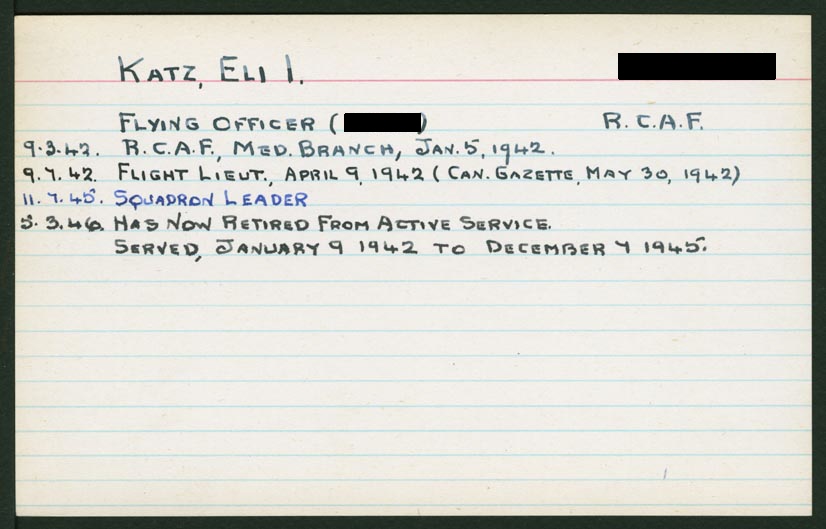 KATZ, ELI I.
FLYING OFFICER ( ) R.C.A.F.
9.3.42. R.C.A.F., MED. BRANCH, JAN. 5, 1942.
9.7.42. FLIGHT LIEUT., APRIL 9, 1942 (CAN. GAZETTE, MAY 30, 1942)
11.7.45. SQUADRON LEADER
5.3.46. HAS NOW RETIRED FROM ACTIVE SERVICE.
SERVED, JANUARY 9 1942 TO DECEMBER 7 1945.